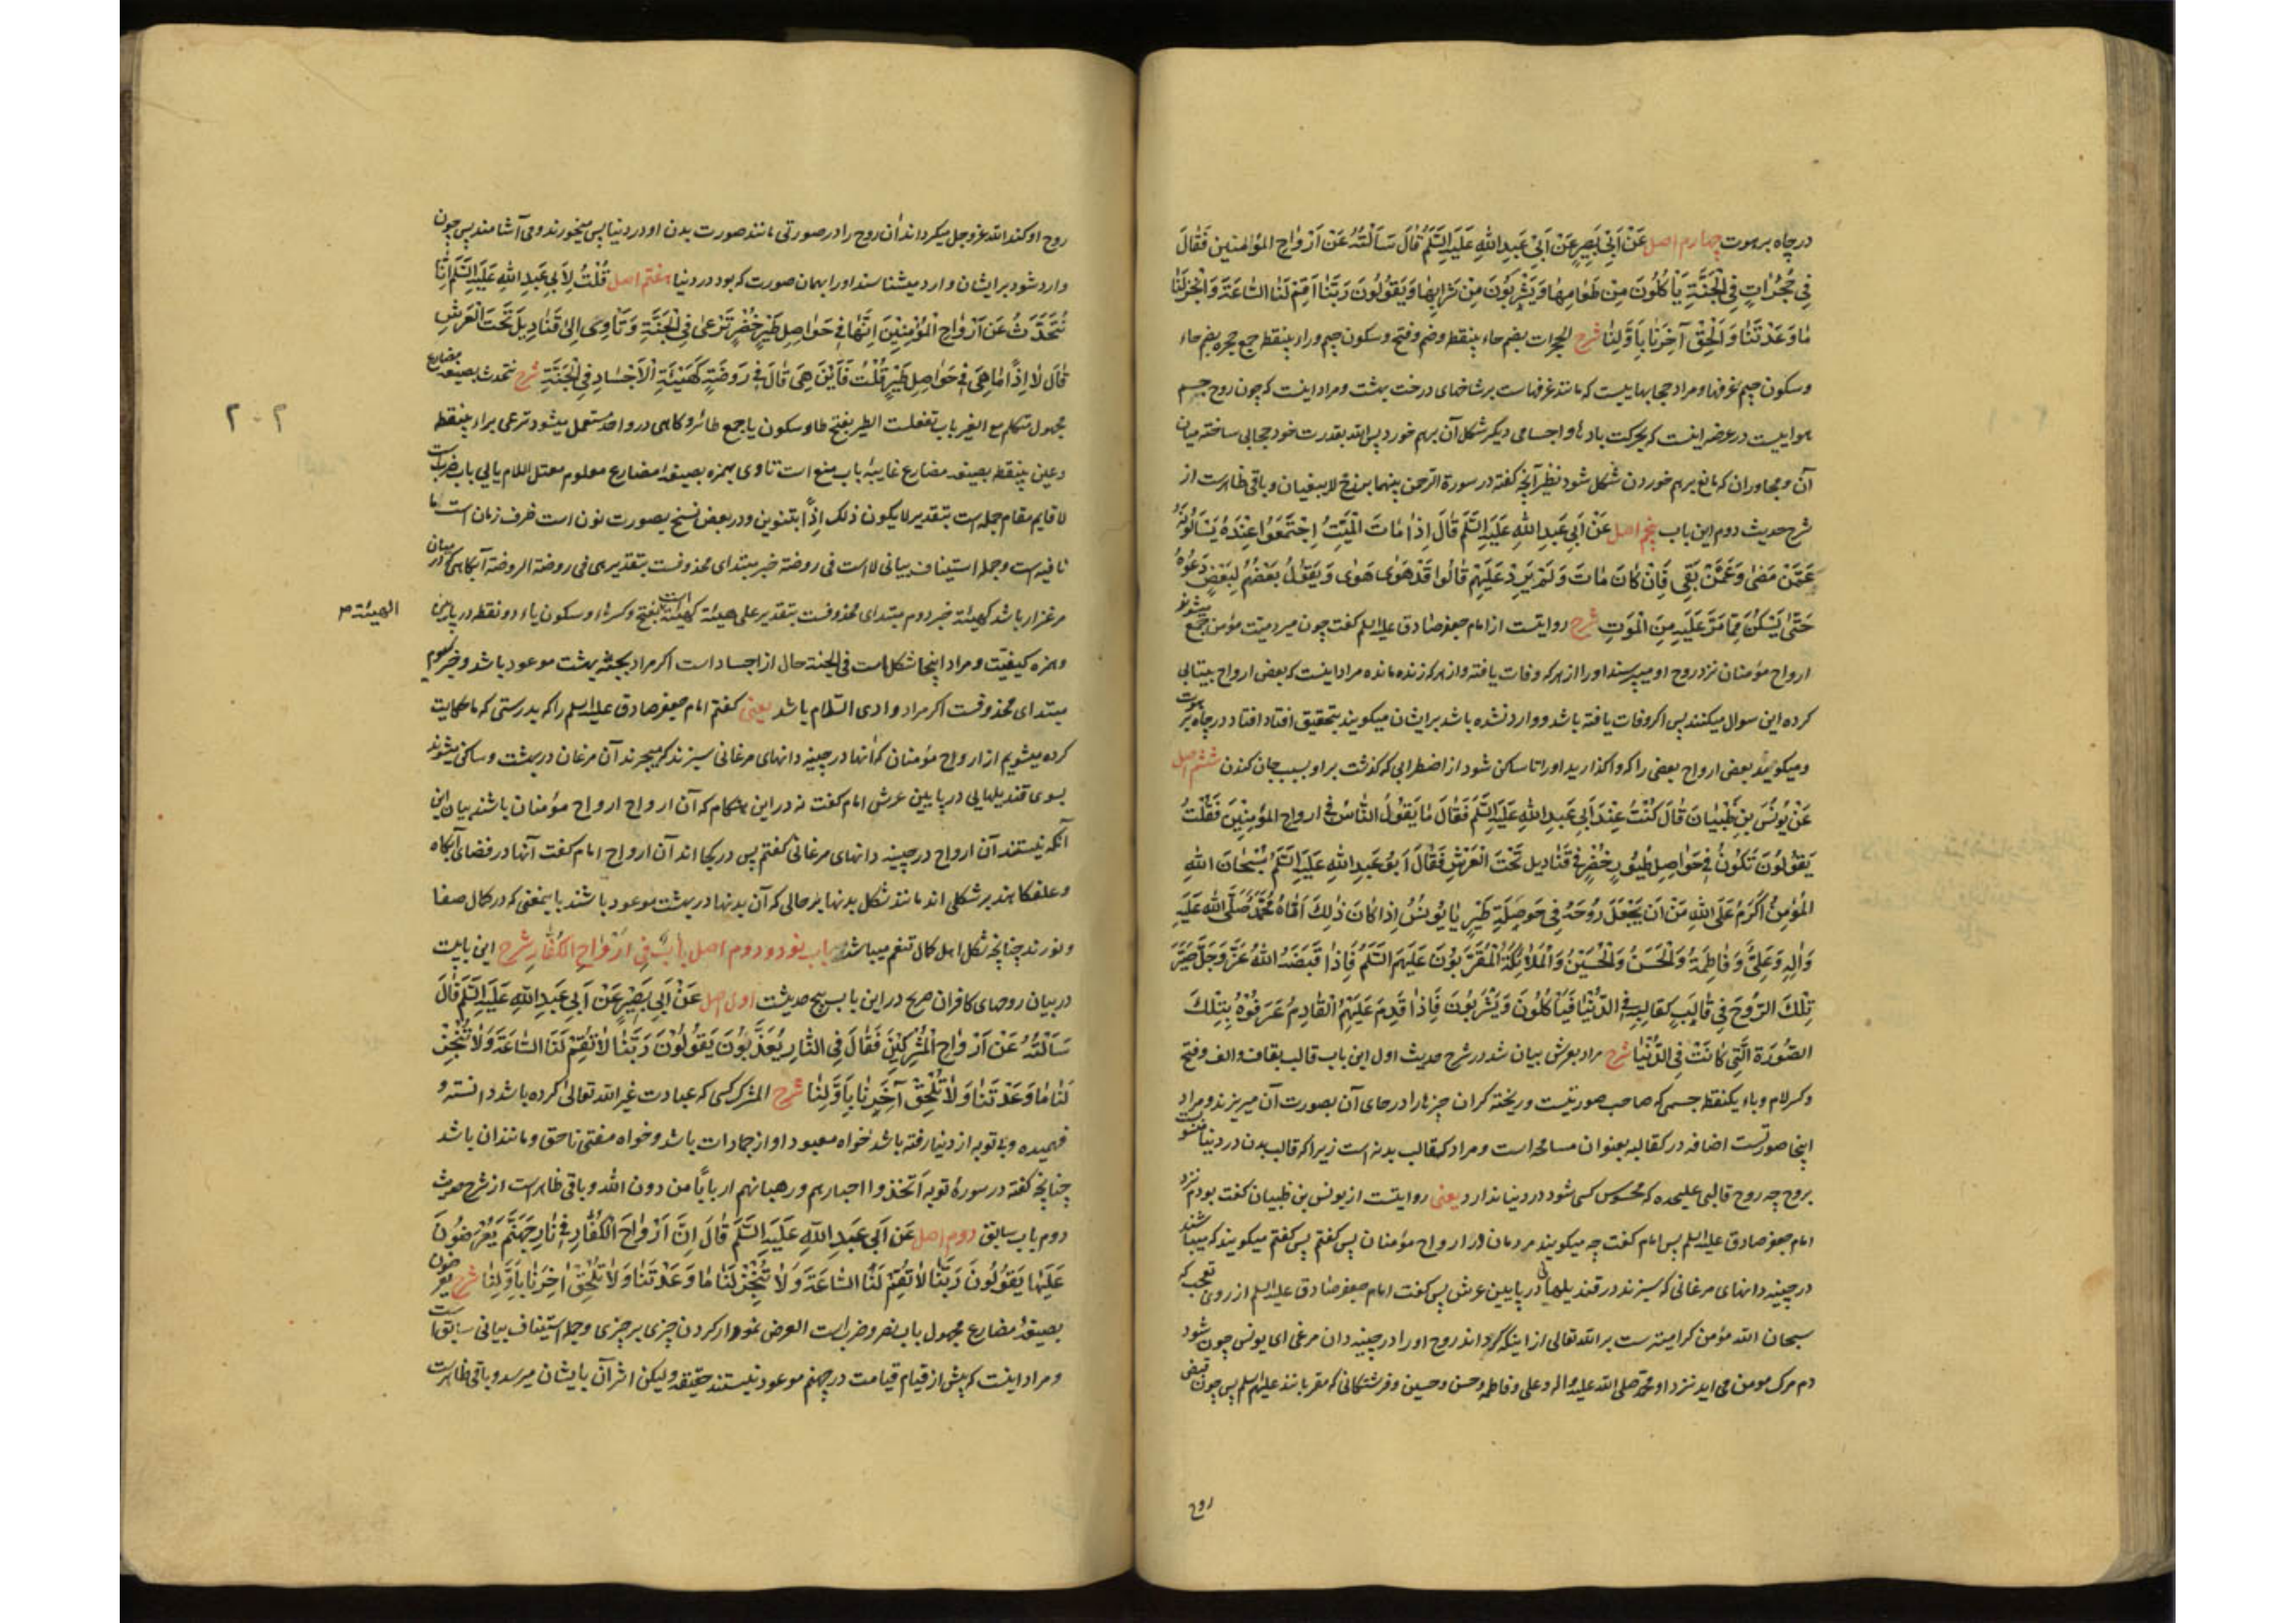 در چاه برهوت چهارم اصل عَنْ اَبِی بَصِیرٍ عَنْ اَبِی عَبْدِ اللهِ عَلَیْهِ السَّلَمُ قَالَ سَاَلْتُهُ عَنْ اَرْوَاحِ المُؤمِنین فَقَالَ
فِی حُجُرَاتٍ فِی الْجَنَّةِ یَأْکُلُونَ مِنْ طَعَامِهَا وَیَشْرَبُونَ مِنْ شَرَابِهَا وَیَقُولُونَ رَبَّنَا اَقِمْ لَنَا السَّاعَةَ وَاَنْجِزْ لَنَا
مَا وَعَدْتَنَا وَاَلْحِقْ آخِرَنَا بِاَوَّلِنَا شرح الحجرات بضم حاء بینقطه وضم وفتح وسکون جیم وراء بینقطه جمع حجره بضم حاء
وسکون جیم غرفها ومراد حجابهاییست که مانند غرفهاست بر شاخهای درخت بهشت ومراد اینست که چون روح جسم
هواییست در عرضه اینست که بحرکت بادها واجسامی دیگر شکل آن برهم خورد پس الله بقدرت خود حجابی ساخته میان
آن ومجاوران که مانع برهم خوردن شکل شود نظیر آنچه گفته در سورة الرحمن بینهما برزخ لا یبغیان وباقی ظاهرست از
شرح حدیث دوم این باب پنجم اصل عَنْ اَبِی عَبْدِ اللهِ عَلَیْهِ السَّلَمُ قَالَ اِذَا مَاتَ الْمَیِّتُ اِجْتَمَعُوا عِنْدَهُ یَسْاَلُونَهُ
عَمَّنْ مَضَی وَعَمَّنْ بَقِیَ فَاِنْ کَانَ مَاتَ وَلَمْ یَرِدْ عَلَیْهِمْ قَالُوا قَدْ هَوَی هَوَی وَیَقُولُ بَعْضُهُمْ لِبَعْضٍ دَعُوهُ
حَتَّی یَسْکُنَ مِمَّا مَرَّ عَلَیْهِ مِنَ الْمَوْتِ شرح روایتست از امام جعفر صادق علیه السلم گفت چون میرد میّت مؤمن جمع میشوند
ارواح مؤمنان نزد روح او میپرسند اورا از هر که وفات یافته واز هر که زنده مانده مراد اینست که بعض ارواح بیتابی
کرده این سوال میکنند پس اگر وفات یافته باشد ووارد نشده باشد بر ایشان میگویند بتحقیق افتاد افتاد در چاه برهوت
ومیگویند بعض ارواح بعضی را که واگذارید اورا تا ساکن شود از اضطرابی که گذشت بر او بسبب جان کندن ششم اصل
عَنْ یُونُسَ بْنِ ظَبْیَانَ قَالَ کُنْتُ عِنْدَ اَبِی عَبْدِ اللهِ عَلَیْهِ السَّلَمُ فَقَالَ مَا یَقُولُ النَّاسُ فِی ارواح المُؤمِنِینَ فَقُلْتُ
یَقُولُونَ تَکُونُ فِی حَوَاصِلِ طُیُورٍ خُضْرٍ فِی قَنَادِیلَ تَحْتَ الْعَرْشِ فَقَالَ اَبُو عَبْدِ اللهِ عَلَیْهِ السَّلَمُ سُبْحَانَ اللهِ
المُؤْمِنُ اَکْرَمُ عَلَی اللهِ مِنْ اَنْ یَجْعَلَ رُوحَهُ فِی حَوْصَلَةِ طَیْرٍ یَا یُونُسُ اِذَا کَانَ ذٰلِکَ اَتَاهُ مُحَمَّدٌ صَلَّی اللهُ عَلَیْهِ
وَاٰلِهِ وَعَلِیٌّ وَفَاطِمَةُ وَالْحَسَنُ وَالْحُسَیْنُ وَالْمَلَائِکَةُ الْمُقَرَّبُونَ عَلَیْهِمُ السَّلَمُ فَاِذَا قَبَضَهُ اللهُ عَزَّ وَجَلَّ صَیَّرَ
تِلْکَ الرُّوحَ فِی قَالَبٍ کَقَالَبِهِ فِی الدُّنْیَا فَیَأْکُلُونَ وَیَشْرَبُونَ فَاِذَا قَدِمَ عَلَیْهِمُ الْقَادِمُ عَرَفُوْهُ بِتِلْکَ
الصُّورَةِ الَّتِی کَانَتْ فِی الدُّنْیَا شرح مراد بعرش بیان شد در شرح حدیث اول این باب قالب بقاف والف وفتح
وکسر لام وباء یکنقطه جسمی که صاحب صورتیست وریخته گران چیزها را در جای آن بصورت آن میریزند ومراد
اینجا صورتست اضافه در کقالبه بعنوان مسامحه است ومراد کقالب بدنه است زیرا که قالب بدن در دنیا منسوبست
بروح چه روح قالبی علیحده که محسوس کسی شود در دنیا ندارد یعنی روایتست از یونس بن ظبیان گفت بودم نزد
امام جعفر صادق علیه السلم پس امام گفت چه میگویند مردمان در ارواح مؤمنان پس گفتم پس گفتم میگویند که میباشند
در چینه دانهای مرغانی که سبزند در قندیلهایی در پایین عرش پس گفت امام جعفر صادق علیه السلم از روی تعجب که
سبحان الله مؤمن گرامیترست بر الله تعالی از اینکه گرداند روح اورا در چینه دان مرغی ای یونس چون شود
دم مرگ مومن می آید نزد او محمد صلی الله علیه واله وعلی وفاطمه وحسن وحسین وفرشتگانی که مقرباند علیهم السلم پس چون قبض
روح
روح او کند الله عزوجل میگرداند آن روح را در صورتی مانند صورت بدن او در دنیا پس میخورند ومی آشامند پس چون
وارد شود بر ایشان وارد میشناسند اورا بهمان صورت که بود در دنیا هفتم اصل قُلْتُ لِاَبِی عَبْدِ اللهِ عَلَیْهِ السَّلَمُ اِنَّا
نُتَحَدَّثُ عَنْ اَرْوَاحِ الْمُؤْمِنِینَ اَنَّهَا فِی حَوَاصِلِ طَیْرٍ خُضْرٍ تَرْعَی فِی الْجَنَّةِ وَتَأْوِی اِلَی قَنَادِیلَ تَحْتَ الْعَرْشِ
قَالَ لَا اِذًا مَا هِیَ فِی حَوَاصِلِ طَیْرٍ قُلْتُ فَاَیْنَ هِیَ قَالَ فِی رَوْضَةٍ کَهَیْئَةِ الْاَجْسَادِ فِی الْجَنَّةِ شرح نتحدث بصیغه مضارع
مجهول متکلم مع الغیر باب تفعلست الطیر بفتح طا وسکون یا جمع طائر وگاهی در واحد مستعمل میشود ترعی براء بینقطه
وعین بینقطه بصیغه مضارع غایبه باب منع است تاوی بهمزه بصیغه مضارع معلوم معتل اللام یایی باب ضربست
لا قایم مقام جمله است بتقدیر لا یکون ذلک اِذًا بتنوین ودر بعض نسخ بصورت نون است ظرف زمان است ما
نافیه است وجمله استیناف بیانی لا است فی روضة خبر مبتدای محذوفست بتقدیر هی فی روضة الروضة آبگاهی که در میان
مرغزار باشد کهیئة خبر دوم مبتدای محذوفست بتقدیر علی هیئة کهیئة است بفتح وکسر هاء وسکون یاء دو نقطه در پایین
الهیئة م
وهمزه کیفیّت ومراد اینجا شکل است فی الجنة حال از اجساد است اگر مراد بجنّة بهشت موعود باشد وخبر سوم
مبتدای محذوفست اگر مراد وادی السّلام باشد یعنی گفتم امام جعفر صادق علیه السلم را که بدرستی که ما حکایت
کرده میشویم از ارواح مؤمنان که آنها در چینه دانهای مرغانی سبزند که میچرند آن مرغان در بهشت وساکن میشوند
بسوی قندیلهایی در پایین عرش امام گفت نه در این هنگام که آن ارواح ارواح مؤمنان باشند بیان این
آنکه نیستند آن ارواح در چینه دانهای مرغانی گفتم پس در کجا اند آن ارواح امام گفت آنها در فضای آبگاه
وعلفگاهند بر شکلی اند مانند شکل بدنها بر حالی که آن بدنها در بهشت موعود باشند باینمعنی که در کمال صفا
ونورند چنانچه شکل اهل کمال تنعم میباشد باب نود ودوم اصل بَابٌ فِی اَرْوَاحِ الْکُفَّارِ شرح این بابیست
در بیان روحهای کافران صریح در این باب پنج حدیثست اول اصل عَنْ اَبِی بَصِیْرٍ عَنْ اَبِی عَبْدِ اللهِ عَلَیْهِ السَّلَمُ قَالَ
سَاَلْتُهُ عَنْ اَرْوَاحِ الْمُشْرِکِیْنَ فَقَالَ فِی النَّارِ یُعَذَّبُونَ یَقُوْلُوْنَ رَبَّنَا لَا تُقِمْ لَنَا السَّاعَةَ وَلَا تُنْجِزْ
لَنَا مَا وَعَدْتَنَا وَلَا تُلْحِقْ آخِرَنَا بِاَوَّلِنَا شرح المشرک کسی که عبادت غیر الله تعالی کرده باشد دانسته و
فهمیده وبی توبه از دنیا رفته باشد خواه معبود او از جمادات باشد وخواه مفتی ناحق ومانند آن باشد
چنانچه گفته در سورهٔ توبه اتخذوا احبارهم ورهبانهم ارباباً من دون الله وباقی ظاهرست از شرح حدیث
دوم باب سابق دوم اصل عَنْ اَبِی عَبْدِ اللهِ عَلَیْهِ السَّلَمُ قَالَ اِنَّ اَرْوَاحَ الْکُفَّارِ فِی نَارِ جَهَنَّمَ یُعْرَضُونَ
عَلَیْهَا یَقُوْلُونَ رَبَّنَا لَا تُقِمْ لَنَا السَّاعَةَ وَلَا تُنْجِزْ لَنَا مَا وَعَدْتَنَا وَلَا تُلْحِقْ آخِرَنَا بِاَوَّلِنَا شرح یعرضون
بصیغهٔ مضارع مجهول باب نصر وضربست العرض نمودار کردن چیزی بر چیزی وجمله استیناف بیانی سابق است
ومراد اینست که پیش از قیام قیامت در جهنم موعود نیستند حقیقة ولیکن اثر آن بایشان میرسد وباقی ظاهرست
۲۰۲